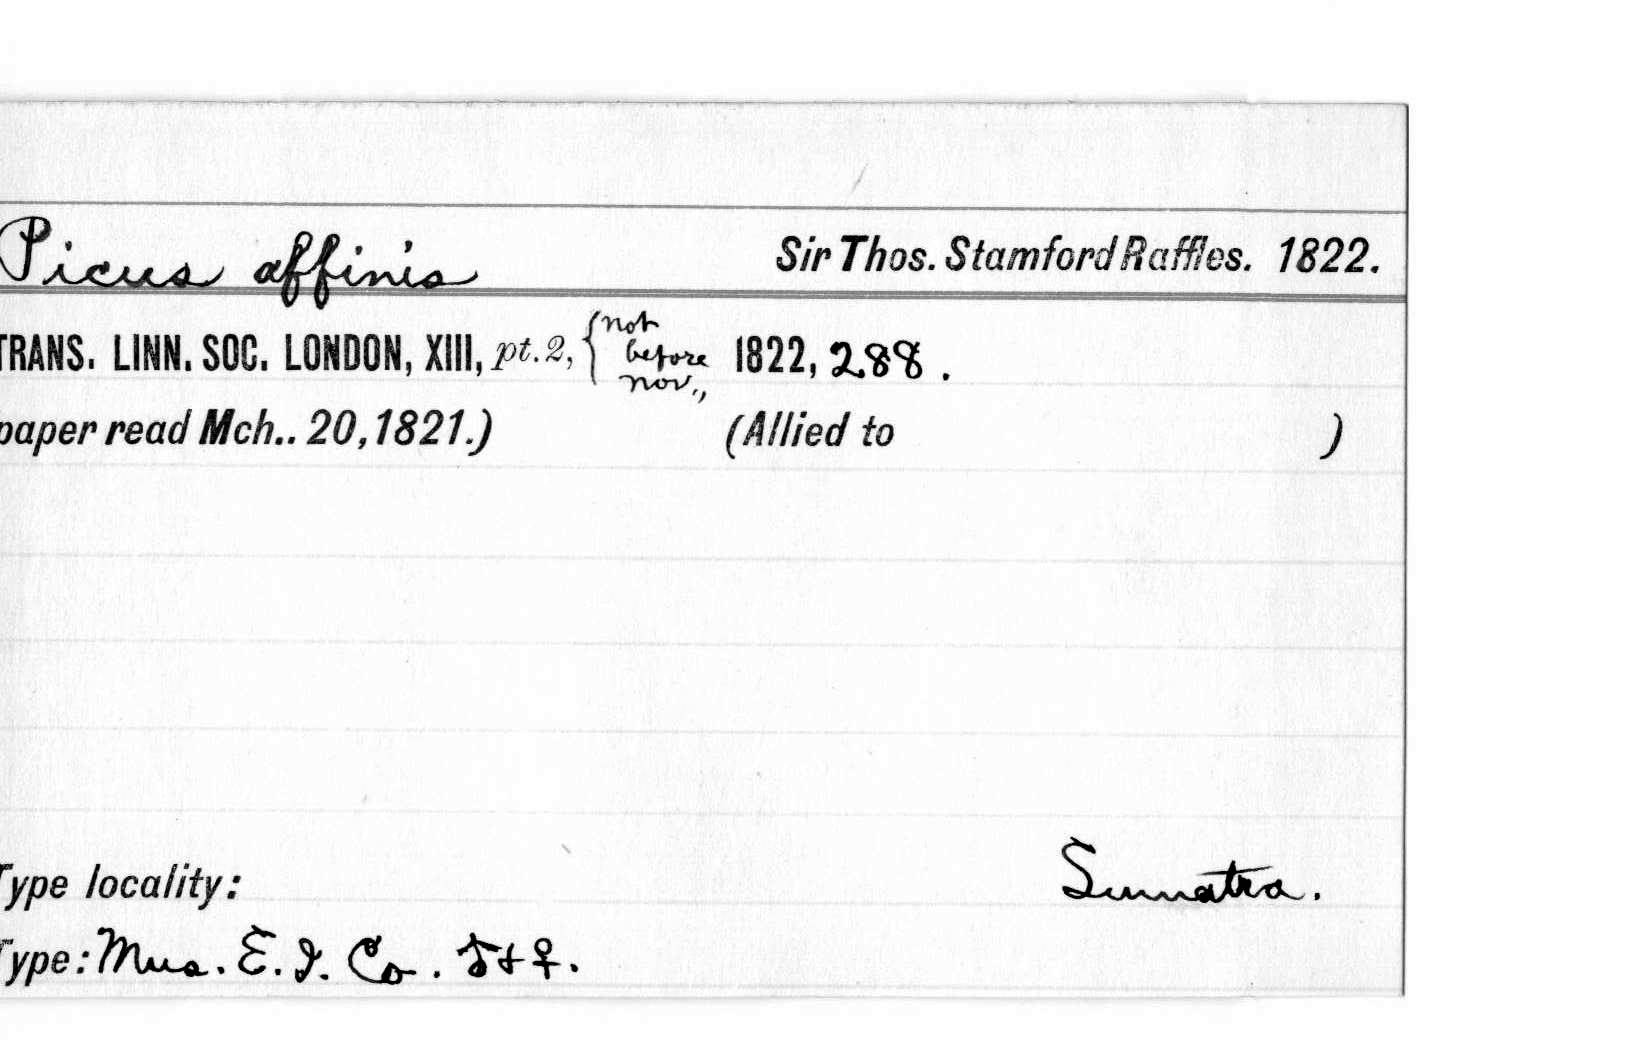 Picus affinis Sir Thos. Stamford Raffles. 1822.
TRANS. LINN. SOC. LONDON, XIII, pt. 2, {not before nov., 1822, 288.
paper read Mch.. 20, 1821.) (Allied to )
Type locality: Sumatra.
Type: Mus. E. I. Co. ♂ + ♀.